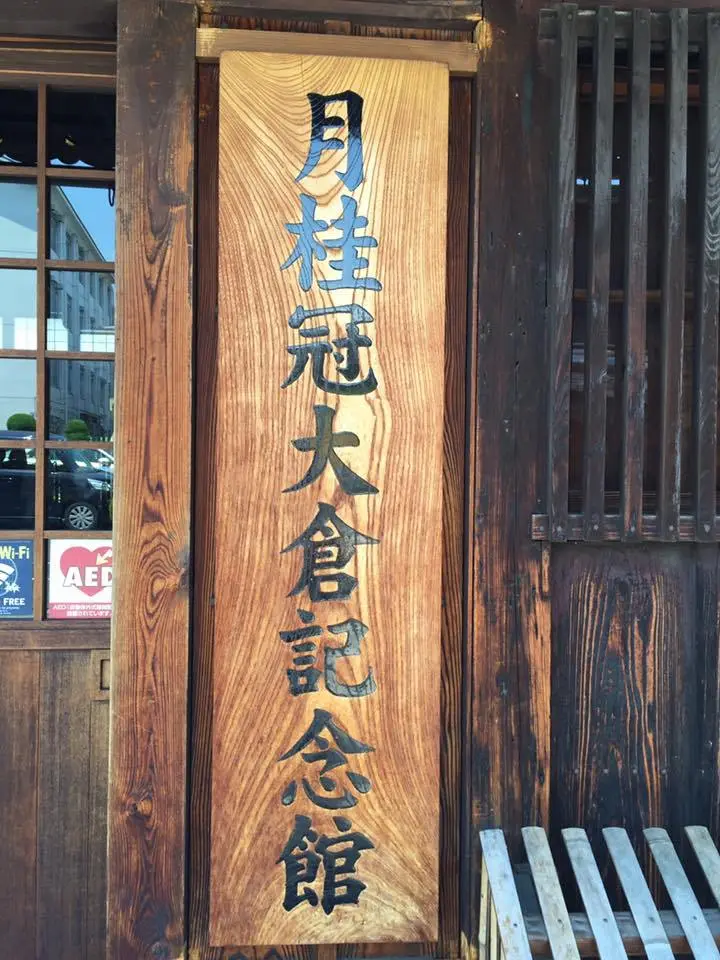 月桂冠大倉記念館
Wi-Fi
FREE
AED